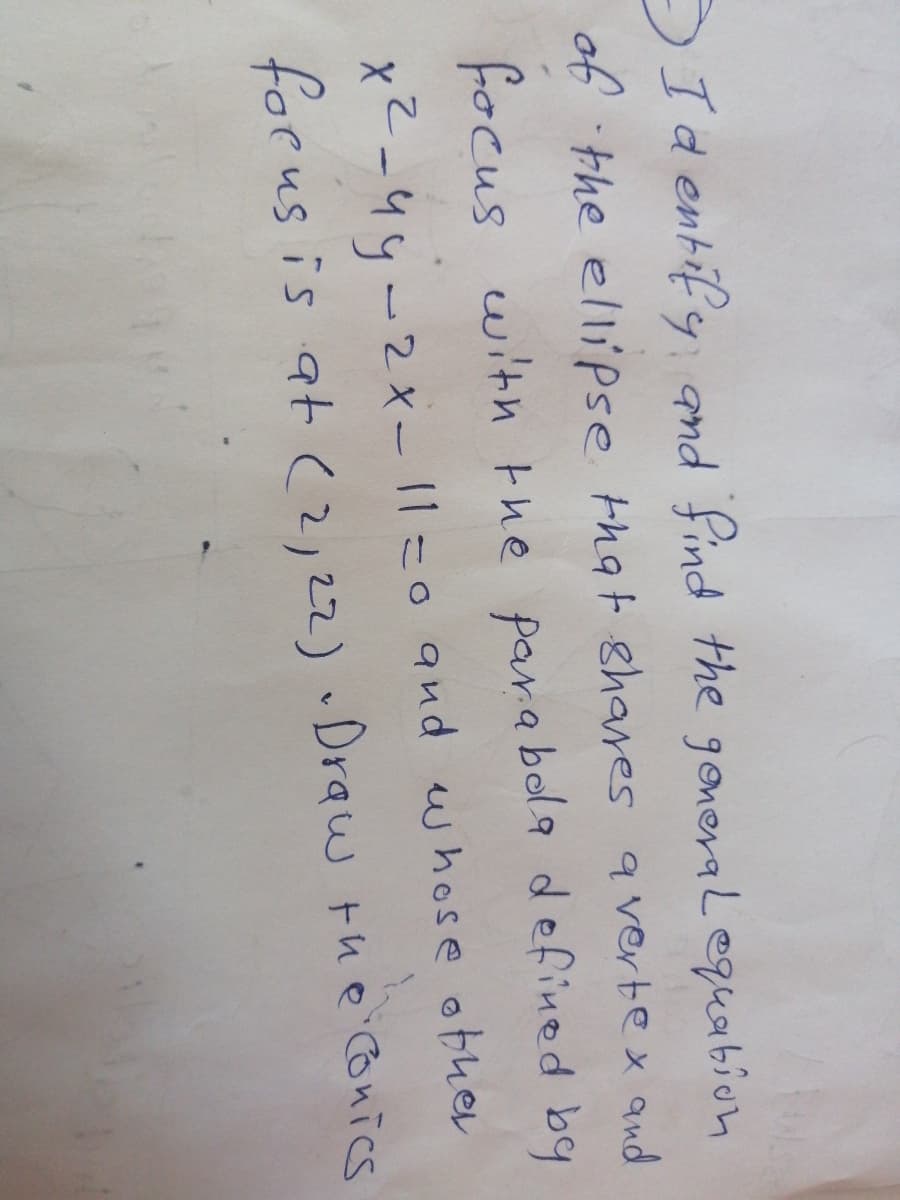 ) Identify and find the general equation
of the ellipse that shares a vertex and
focus with the parabola defined by
x2-4y-2x-11=0 and whose other
focus is at (2,22). Draw the conics